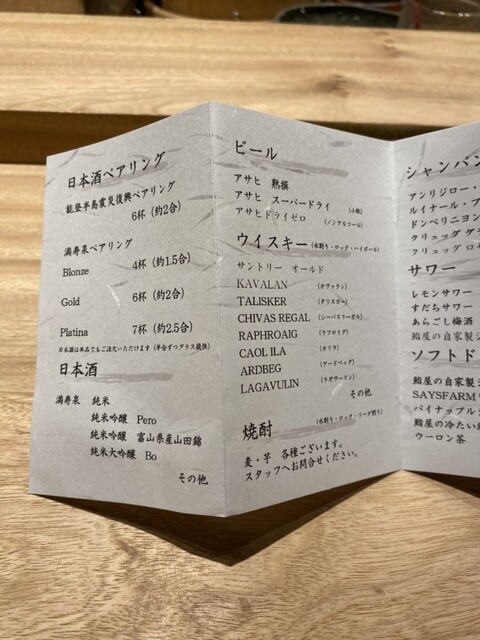 日本酒ペアリング
能登半島震災復興ペアリング
6杯（約2合）
満寿泉ペアリング
Blonze 4杯（約1.5合）
Gold 6杯（約2合）
Platina 7杯（約2.5合）
日本酒は単品でもご注文いただけます（半合ずつグラス提供）
日本酒
満寿泉 純米
純米吟醸 Pero
純米吟醸 富山県産山田錦
純米大吟醸 Bo
その他
ビール
アサヒ 熟撰
アサヒ スーパードライ （小瓶）
アサヒドライゼロ （ノンアルコール）
ウイスキー（水割り・ロック・ハイボール）
サントリー オールド
KAVALAN （カヴァラン）
TALISKER （タリスカー）
CHIVAS REGAL （シーバスリーガル）
RAPHROAIG （ラフロイグ）
CAOL ILA （カリラ）
ARDBEG （アードベッグ）
LAGAVULIN （ラガヴーリン）
その他
焼酎 （水割り・ロック・ソーダ割り）
麦・芋 各種ございます。
スタッフへお問合せください。
シャンパン
アンリジロー・
ルイナール・ブ
ドンペリニヨン
クリュッグ グ
クリュッグ ロゼ
サワー
レモンサワー
すだちサワー
あらごし梅酒
鮨屋の自家製
ソフトド
鮨屋の自家製ジ
SAYSFARM
パイナップル
鮨屋の冷たい
ウーロン茶